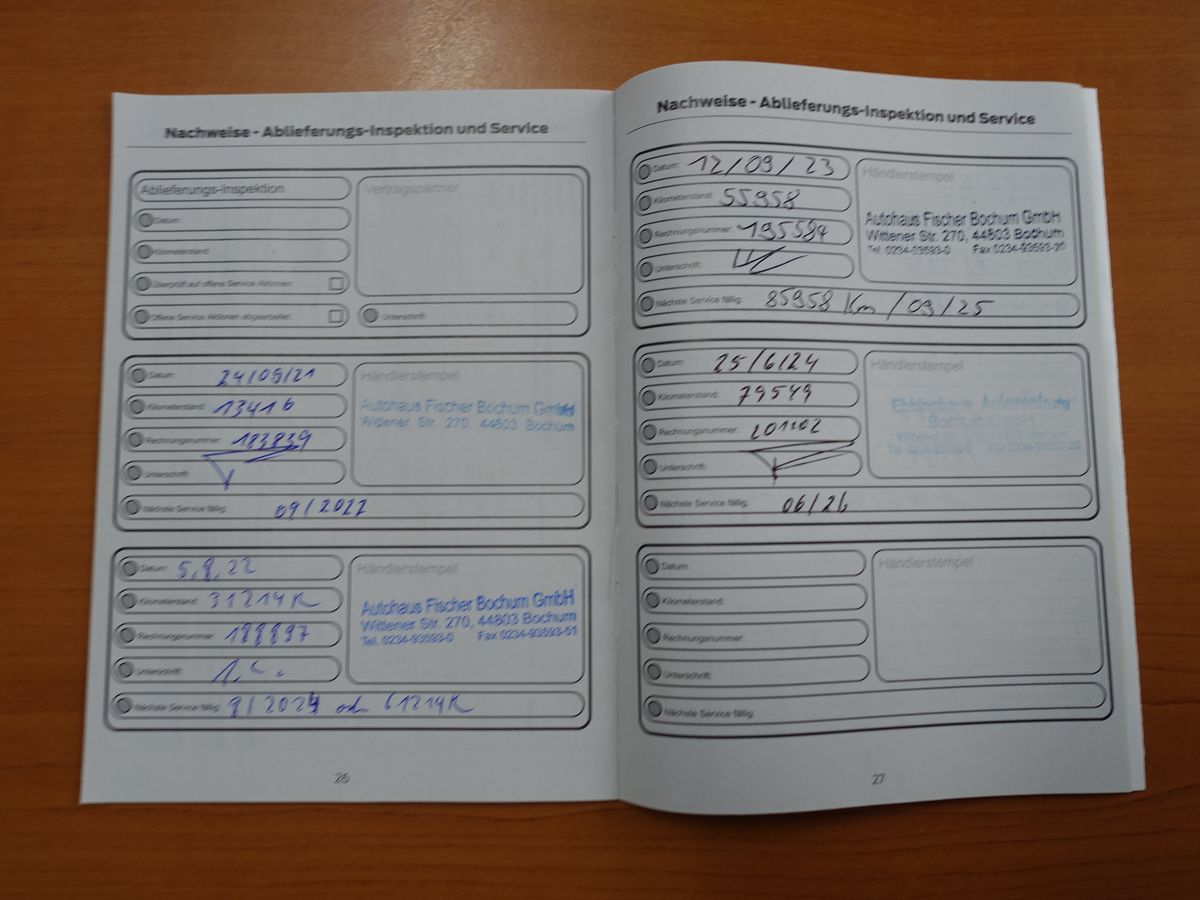 Nachweise - Ablieferungs-Inspektion und Service
Ablieferungs-Inspektion
Vertragspartner
Datum:
Kilometerstand:
Überprüft auf offene Service Aktionen:
Offene Service Aktionen abgearbeitet:
Unterschrift:
Datum: 24/09/21
Händlerstempel
Kilometerstand: 13416
Autohaus Fischer Bochum GmbH
Wittener Str. 270, 44803 Bochum
Rechnungsnummer: 183839
Unterschrift:
Nächste Service fällig: 09/2022
Datum: 5.8.22
Händlerstempel
Kilometerstand: 31214K
Autohaus Fischer Bochum GmbH
Wittener Str. 270, 44803 Bochum
Tel. 0234-93593-0 Fax 0234-93593-51
Rechnungsnummer: 188897
Unterschrift:
Nächste Service fällig: 8/2024 od 61214K
26
Nachweise - Ablieferungs-Inspektion und Service
Datum: 12/09/23
Händlerstempel
Kilometerstand: 55958
Autohaus Fischer Bochum GmbH
Wittener Str. 270, 44803 Bochum
Tel. 0234-93593-0 Fax 0234-93593-20
Rechnungsnummer: 195584
Unterschrift:
Nächste Service fällig: 85958 Km /09/25
Datum: 25/6/24
Händlerstempel
Kilometerstand: 79549
Ebbinghaus Autozentrum
Bochum GmbH
Rechnungsnummer: 201102
Unterschrift:
Nächste Service fällig: 06/26
Datum:
Händlerstempel
Kilometerstand:
Rechnungsnummer:
Unterschrift:
Nächste Service fällig:
27